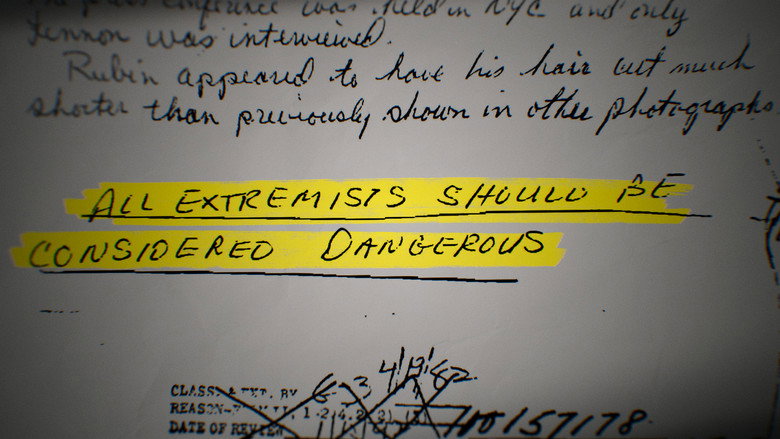 press conference was held in NYC and only
Lennon was interviewed.
Rubin appeared to have his hair cut much
shorter than previously shown in other photographs
ALL EXTREMISTS SHOULD BE
CONSIDERED DANGEROUS
CLASS. & EXT. BY G-3 4/13/82
REASON- 1-2.4.2
DATE OF REVIEW 110157178